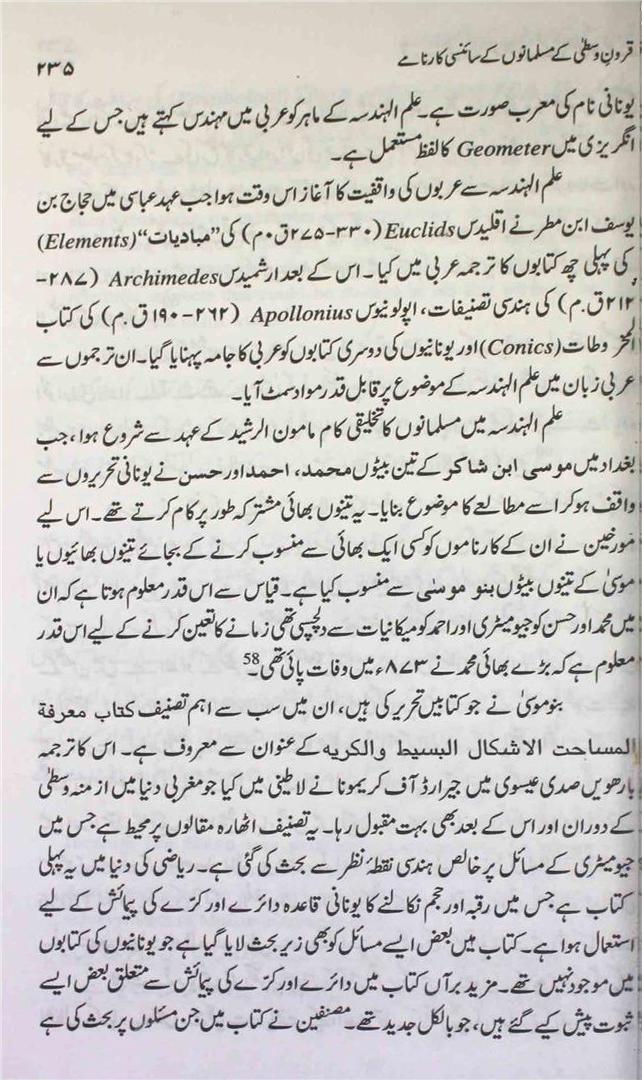 قرونِ وسطیٰ کے مسلمانوں کے سائنسی کارنامے
۲۳۵
یونانی نام کی معرب صورت ہے۔ علم الہندسہ کے ماہر کو عربی میں مہندس کہتے ہیں جس کے لیے
انگریزی میں Geometer کا لفظ مستعمل ہے۔
علم الہندسہ سے عربوں کی واقفیت کا آغاز اس وقت ہوا جب عہد عباسی میں حجاج بن
یوسف ابن مطر نے اقلیدس Euclids (۳۳۰-۲۷۵ق۔م) کی ”مبادیات“ (Elements)
کی پہلی چھ کتابوں کا ترجمہ عربی میں کیا۔ اس کے بعد ارشمیدس Archimedes (۲۸۷-
۲۱۲ق۔م) کی ہندسی تصنیفات، اپولونیوس Apollonius (۲۶۲-۱۹۰ق۔م) کی کتاب
المخروطات (Conics) اور یونانیوں کی دوسری کتابوں کو عربی کا جامہ پہنایا گیا۔ ان ترجموں سے
عربی زبان میں علم الہندسہ کے موضوع پر قابل قدر مواد سمٹ آیا۔
علم الہندسہ میں مسلمانوں کا تخلیقی کام مامون الرشید کے عہد سے شروع ہوا، جب
بغداد میں موسی ابن شاکر کے تین بیٹوں محمد، احمد اور حسن نے یونانی تحریروں سے
واقف ہو کر اسے مطالعے کا موضوع بنایا۔ یہ تینوں بھائی مشترکہ طور پر کام کرتے تھے۔ اس لیے
مورخین نے ان کے کارناموں کو کسی ایک بھائی سے منسوب کرنے کے بجائے تینوں بھائیوں یا
موسیٰ کے تینوں بیٹوں بنو موسی سے منسوب کیا ہے۔ قیاس سے اس قدر معلوم ہوتا ہے کہ ان
میں محمد اور حسن کو جیومیٹری اور احمد کو میکانیات سے دلچسپی تھی زمانے کا تعین کرنے کے لیے اس قدر
معلوم ہے کہ بڑے بھائی محمد نے ۸۷۳ء میں وفات پائی تھی۔58
بنوموسیٰ نے جو کتابیں تحریر کی ہیں، ان میں سب سے اہم تصنیف کتاب معرفة
المساحت الاشکال البسیط والکریه کے عنوان سے معروف ہے۔ اس کا ترجمہ
بارھویں صدی عیسوی میں جیرارڈ آف کریمونا نے لاطینی میں کیا جو مغربی دنیا میں ازمنہ وسطیٰ
کے دوران اور اس کے بعد بھی بہت مقبول رہا۔ یہ تصنیف اٹھارہ مقالوں پر محیط ہے جس میں
جیومیٹری کے مسائل پر خالص ہندسی نقطۂ نظر سے بحث کی گئی ہے۔ ریاضی کی دنیا میں یہ پہلی
کتاب ہے جس میں رقبہ اور حجم نکالنے کا یونانی قاعدہ دائرے اور کرّے کی پیمائش کے لیے
استعمال ہوا ہے۔ کتاب میں بعض ایسے مسائل کو بھی زیر بحث لایا گیا ہے جو یونانیوں کی کتابوں
میں موجود نہیں تھے۔ مزید برآں کتاب میں دائرے اور کرّے کی پیمائش سے متعلق بعض ایسے
ثبوت پیش کیے گئے ہیں، جو بالکل جدید تھے۔ مصنفین نے کتاب میں جن مسئلوں پر بحث کی ہے